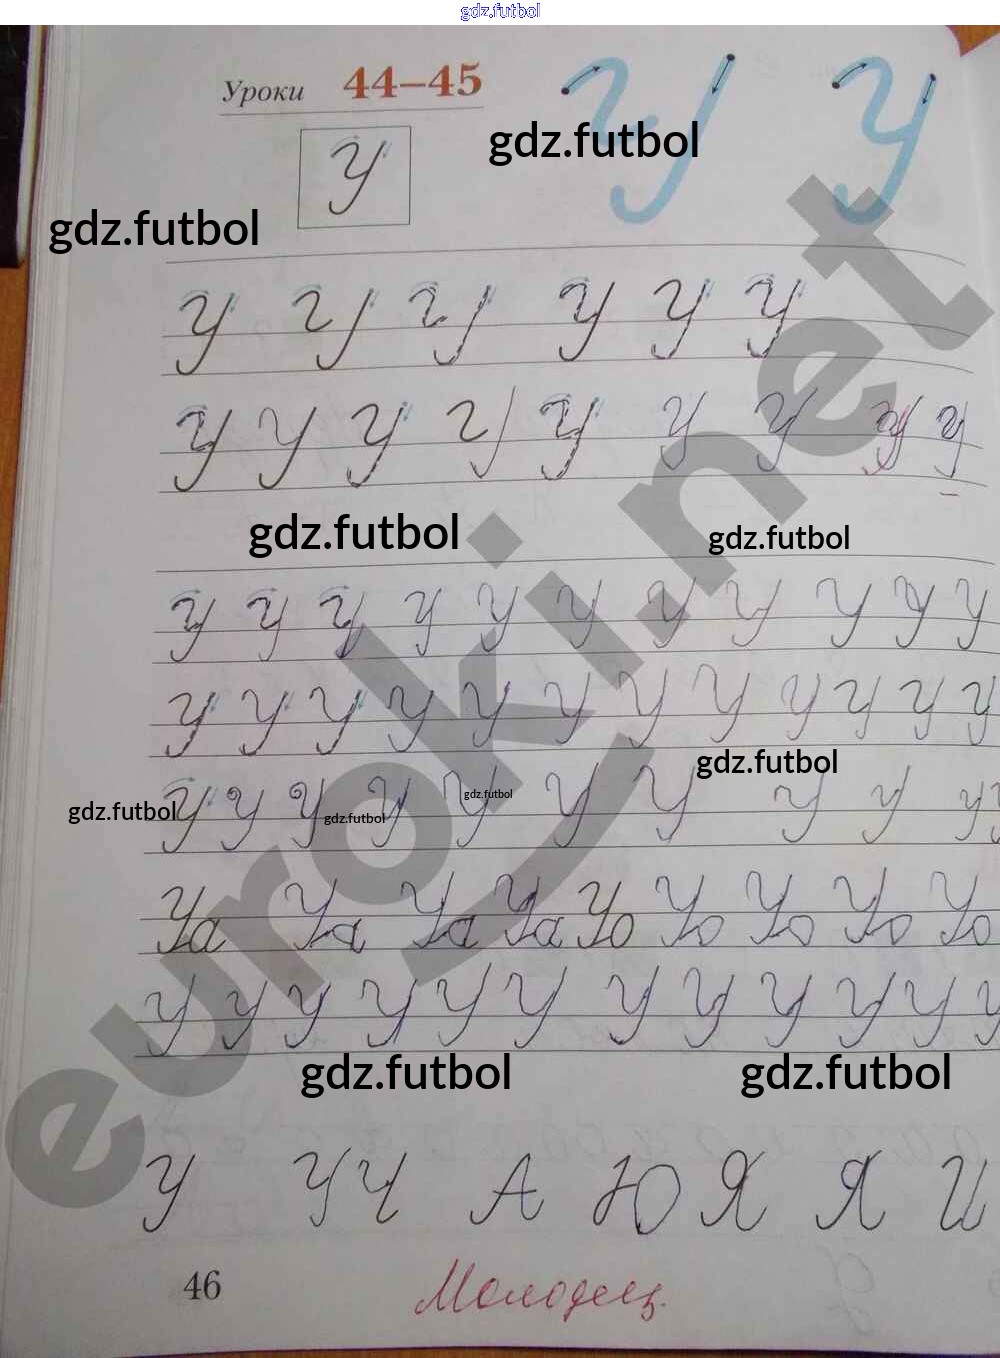 gdz.futbol
Уроки 44–45
У У
gdz.futbol
У
gdz.futbol
У У У У У У
У У У У У У У У У
gdz.futbol gdz.futbol
У У У У У У У У У У У
У У У У У У У У У У У У
gdz.futbol
У У У У У У У У У У
gdz.futbol gdz.futbol gdz.futbol
Уа Уа Уа Уа Уо Уо Уо Уо Уо
У У У У У У У У У У У У
gdz.futbol gdz.futbol
У У Ч А Ю Я Я И
46 Молодец.
euroki.net